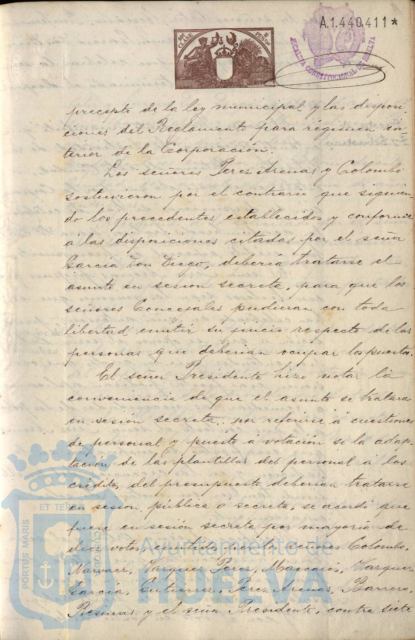 A.1.440.411*
precepto de la ley municipal y las disposi-
ciones del Reglamento para régimen in-
terior de la Corporación.
Los señores Perez Arenas y Colombo
sostuvieron por el contrario que siguien-
do los precedentes establecidos y conforme
a las disposiciones citadas por el señor
Garcia Don Diego, deberia tratarse el
asunto en sesion secreta, para que los
señores Concejales pudieran con toda
libertad emitir su juicio respecto de las
personas que deberian ocupar los puestos.
El señor Presidente hizo notar la
conveniencia de que el asunto se tratara
en sesión secreta por referirse á cuestiones
de personal y puesto á votación si la adap-
tación de las plantillas del personal á los
créditos del presupuesto deberian tratarse
en sesion pública o secreta, se acordó que
fuera en sesión secreta por mayoria de
votos emitidos por los señores Colombo,
Vazquez Perez, Mascarós, Vazquez
Garcia, Gutierrez, Perez Arenas, Barrero,
y el señor Presidente, contra siete
PORTUS MARIS
ET TERRAE
Ayuntamiento de
HUELVA